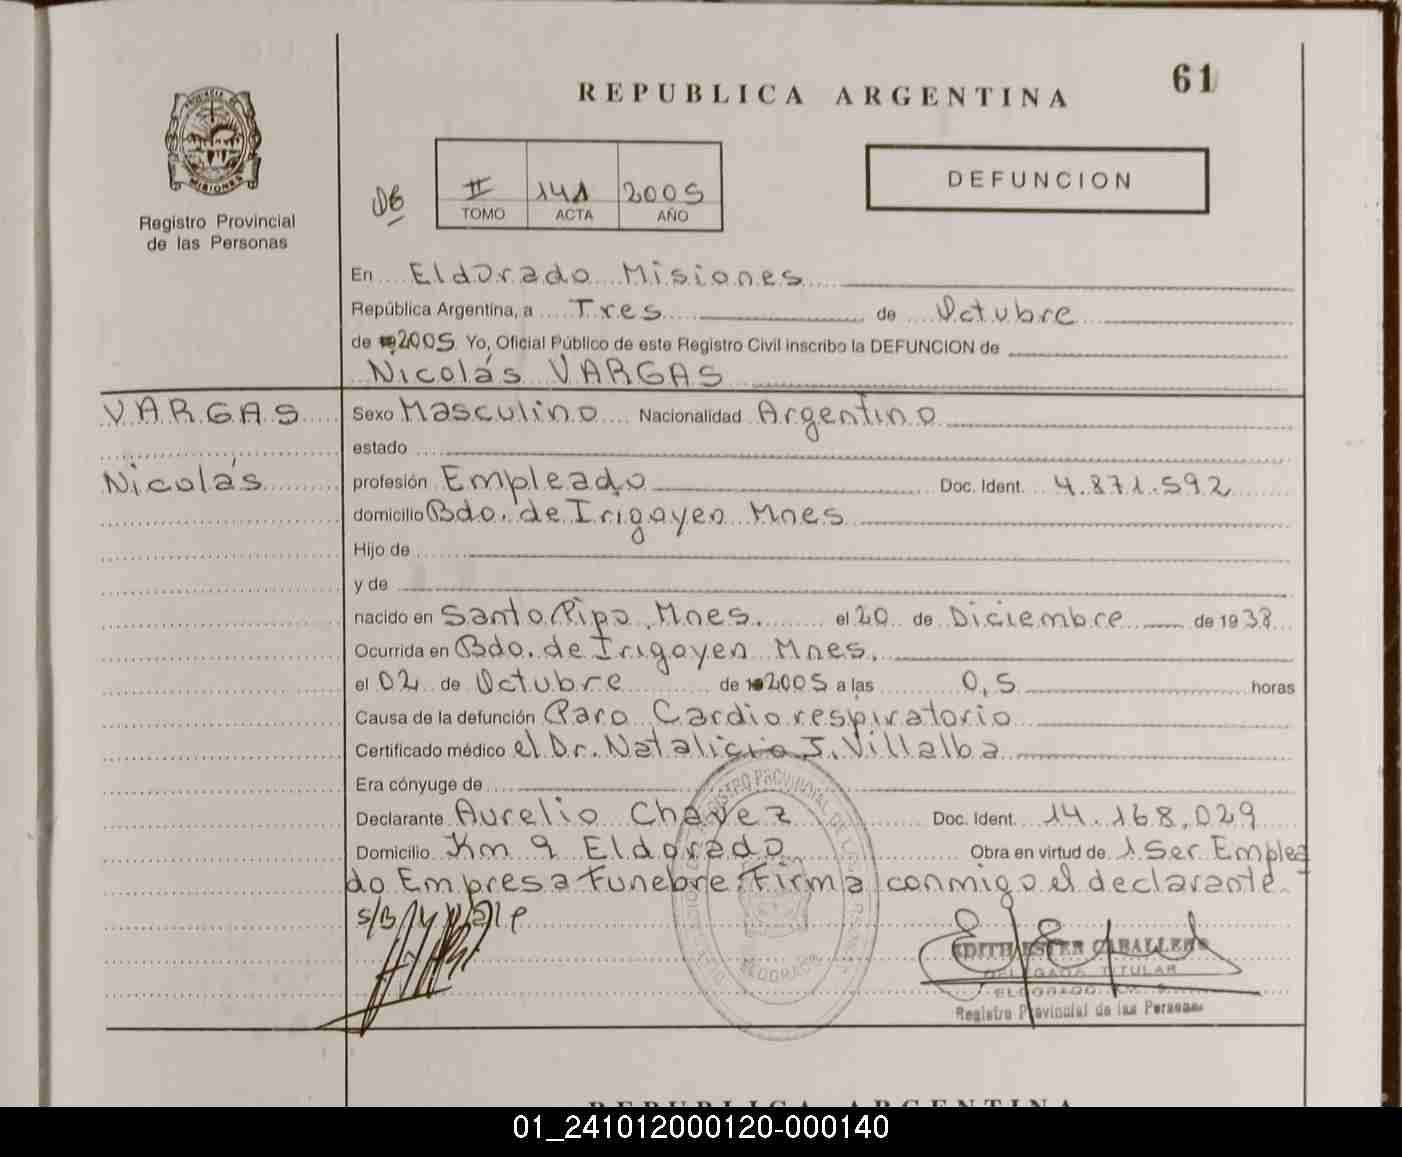 61
REPUBLICA ARGENTINA
PROVINCIA DE
MISIONES
Registro Provincial
de las Personas
DB
II 141 2005
TOMO ACTA AÑO
DEFUNCION
En Eldorado Misiones
República Argentina, a Tres de Octubre
de 2005 Yo, Oficial Público de este Registro Civil inscribo la DEFUNCION de
Nicolás VARGAS
VARGAS
Nicolás
Sexo Masculino Nacionalidad Argentino
estado
profesión Empleado Doc. Ident. 4.871.592
domicilio Bdo. de Irigoyen Mnes
Hijo de
y de
nacido en Santo Pipo, Mnes. el 20 de Diciembre de 1938
Ocurrida en Bdo. de Irigoyen Mnes.
el 02 de Octubre de 2005 a las 0,5 horas
Causa de la defunción Paro Cardiorespiratorio
Certificado médico el Dr. Natalicio J. Villalba
Era cónyuge de
Declarante Aurelio Chavez Doc. Ident. 14.168.029
Domicilio Km 9 Eldorado Obra en virtud de 1 Ser Emplea
do Empresa Funebre. Firma conmigo el declarante
EDITH ESTER CABALLERO
DELEGADA TITULAR
ELDORADO
Registro Provincial de las Personas
ELDORADO
REPUBLICA ARGENTINA
01_241012000120-000140